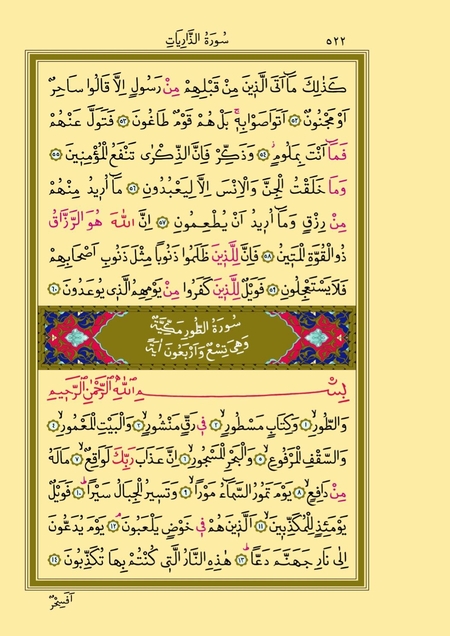 سورة الذاريات ٥٢٢
كَذٰلِكَ مَٓا اَتَى الَّذ۪ينَ مِنْ قَبْلِهِمْ مِنْ رَسُولٍ اِلَّا قَالُوا سَاحِرٌ
اَوْ مَجْنُونٌ ﴿٥٢﴾ اَتَوَاصَوْا بِه۪ۚ بَلْ هُمْ قَوْمٌ طَاغُونَ ﴿٥٣﴾ فَتَوَلَّ عَنْهُمْ
فَمَٓا اَنْتَ بِمَلُومٍۘ ﴿٥٤﴾ وَذَكِّرْ فَاِنَّ الذِّكْرٰى تَنْفَعُ الْمُؤْمِن۪ينَ ﴿٥٥﴾
وَمَا خَلَقْتُ الْجِنَّ وَالْاِنْسَ اِلَّا لِيَعْبُدُونِ ﴿٥٦﴾ مَٓا اُر۪يدُ مِنْهُمْ
مِنْ رِزْقٍ وَمَٓا اُر۪يدُ اَنْ يُطْعِمُونِ ﴿٥٧﴾ اِنَّ اللّٰهَ هُوَ الرَّزَّاقُ
ذُو الْقُوَّةِ الْمَت۪ينُ ﴿٥٨﴾ فَاِنَّ لِلَّذ۪ينَ ظَلَمُوا ذَنُوبًا مِثْلَ ذَنُوبِ اَصْحَابِهِمْ
فَلَا يَسْتَعْجِلُونِ ﴿٥٩﴾ فَوَيْلٌ لِلَّذ۪ينَ كَفَرُوا مِنْ يَوْمِهِمُ الَّذ۪ي يُوعَدُونَ ﴿٦٠﴾
سورة الطور مكية
وهي تسع واربعون اية
بِسْمِ اللّٰهِ الرَّحْمٰنِ الرَّح۪يمِ
وَالطُّورِۙ ﴿١﴾ وَكِتَابٍ مَسْطُورٍۙ ﴿٢﴾ ف۪ي رَقٍّ مَنْشُورٍۙ ﴿٣﴾ وَالْبَيْتِ الْمَعْمُورِۙ ﴿٤﴾
وَالسَّقْفِ الْمَرْفُوعِۙ ﴿٥﴾ وَالْبَحْرِ الْمَسْجُورِۙ ﴿٦﴾ اِنَّ عَذَابَ رَبِّكَ لَوَاقِعٌۙ ﴿٧﴾ مَا لَهُ
مِنْ دَافِعٍۙ ﴿٨﴾ يَوْمَ تَمُورُ السَّمَٓاءُ مَوْرًاۙ ﴿٩﴾ وَتَس۪يرُ الْجِبَالُ سَيْرًاۜ ﴿١٠﴾ فَوَيْلٌ
يَوْمَئِذٍ لِلْمُكَذِّب۪ينَۙ ﴿١١﴾ اَلَّذ۪ينَ هُمْ ف۪ي خَوْضٍ يَلْعَبُونَۘ ﴿١٢﴾ يَوْمَ يُدَعُّونَ
اِلٰى نَارِ جَهَنَّمَ دَعًّاۜ ﴿١٣﴾ هٰذِهِ النَّارُ الَّت۪ي كُنْتُمْ بِهَا تُكَذِّبُونَ ﴿١٤﴾
اَفَسِحْرٌ